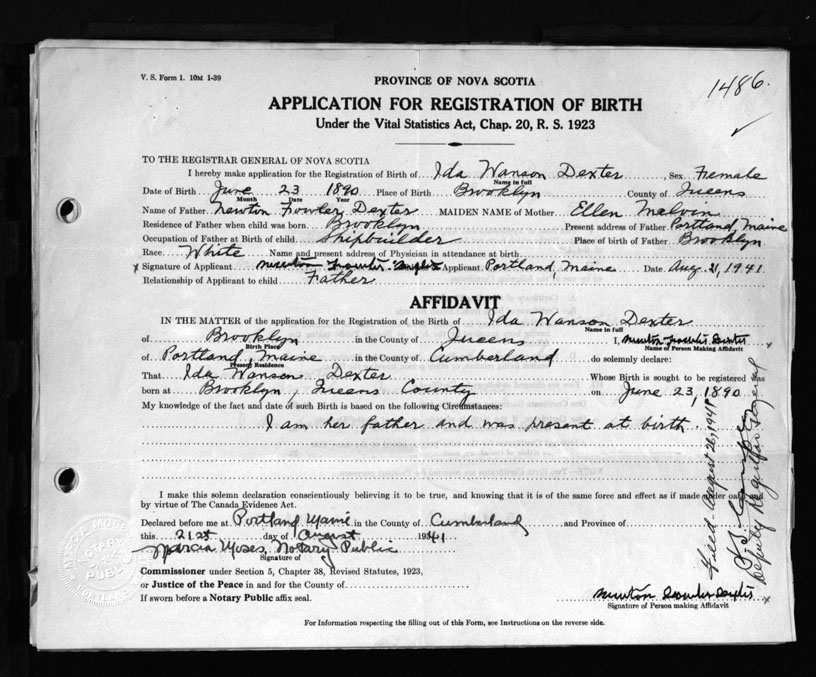 V. S. Form 1. 10M 1-39
1486.
PROVINCE OF NOVA SCOTIA
APPLICATION FOR REGISTRATION OF BIRTH
Under the Vital Statistics Act, Chap. 20, R. S. 1923
TO THE REGISTRAR GENERAL OF NOVA SCOTIA
I hereby make application for the Registration of Birth of Ida Wanson Dexter, Sex Female
Name in full
Date of Birth June 23 1890 Place of Birth Brooklyn County of Queens
Month Date Year
Name of Father Newton Fowler Dexter MAIDEN NAME of Mother Ellen Melvin
Residence of Father when child was born Brooklyn Present address of Father Portland, Maine
Occupation of Father at Birth of child Shipbuilder Place of birth of Father Brooklyn
Race White Name and present address of Physician in attendance at birth
x Signature of Applicant Newton Fowler Dexter Applicant Portland, Maine Date Aug. 21, 1941
Relationship of Applicant to child Father
AFFIDAVIT
IN THE MATTER of the application for the Registration of the Birth of Ida Wanson Dexter
Name in full
of Brooklyn in the County of Queens I, Newton Fowler Dexter x
Birth Place Name of Person Making Affidavit
of Portland, Maine in the County of Cumberland do solemnly declare:
Present Residence
That Ida Wanson Dexter Whose Birth is sought to be registered was
born at Brooklyn, Queens County on June 23, 1890
My knowledge of the fact and date of such Birth is based on the following Circumstances:
I am her father and was present at birth.
I make this solemn declaration conscientiously believing it to be true, and knowing that it is of the same force and effect as if made under oath
by virtue of The Canada Evidence Act.
Declared before me at Portland Maine in the County of Cumberland and Province of
this 21st day of August 1941
Marcia Moses, Notary Public
Signature of
Commissioner under Section 5, Chapter 38, Revised Statutes, 1923,
or Justice of the Peace in and for the County of
If sworn before a Notary Public affix seal.
Newton Fowler Dexter x
Signature of Person making Affidavit
For Information respecting the filling out of this Form, see Instructions on the reverse side.
Filed August 26, 1941
Deputy Registrar General